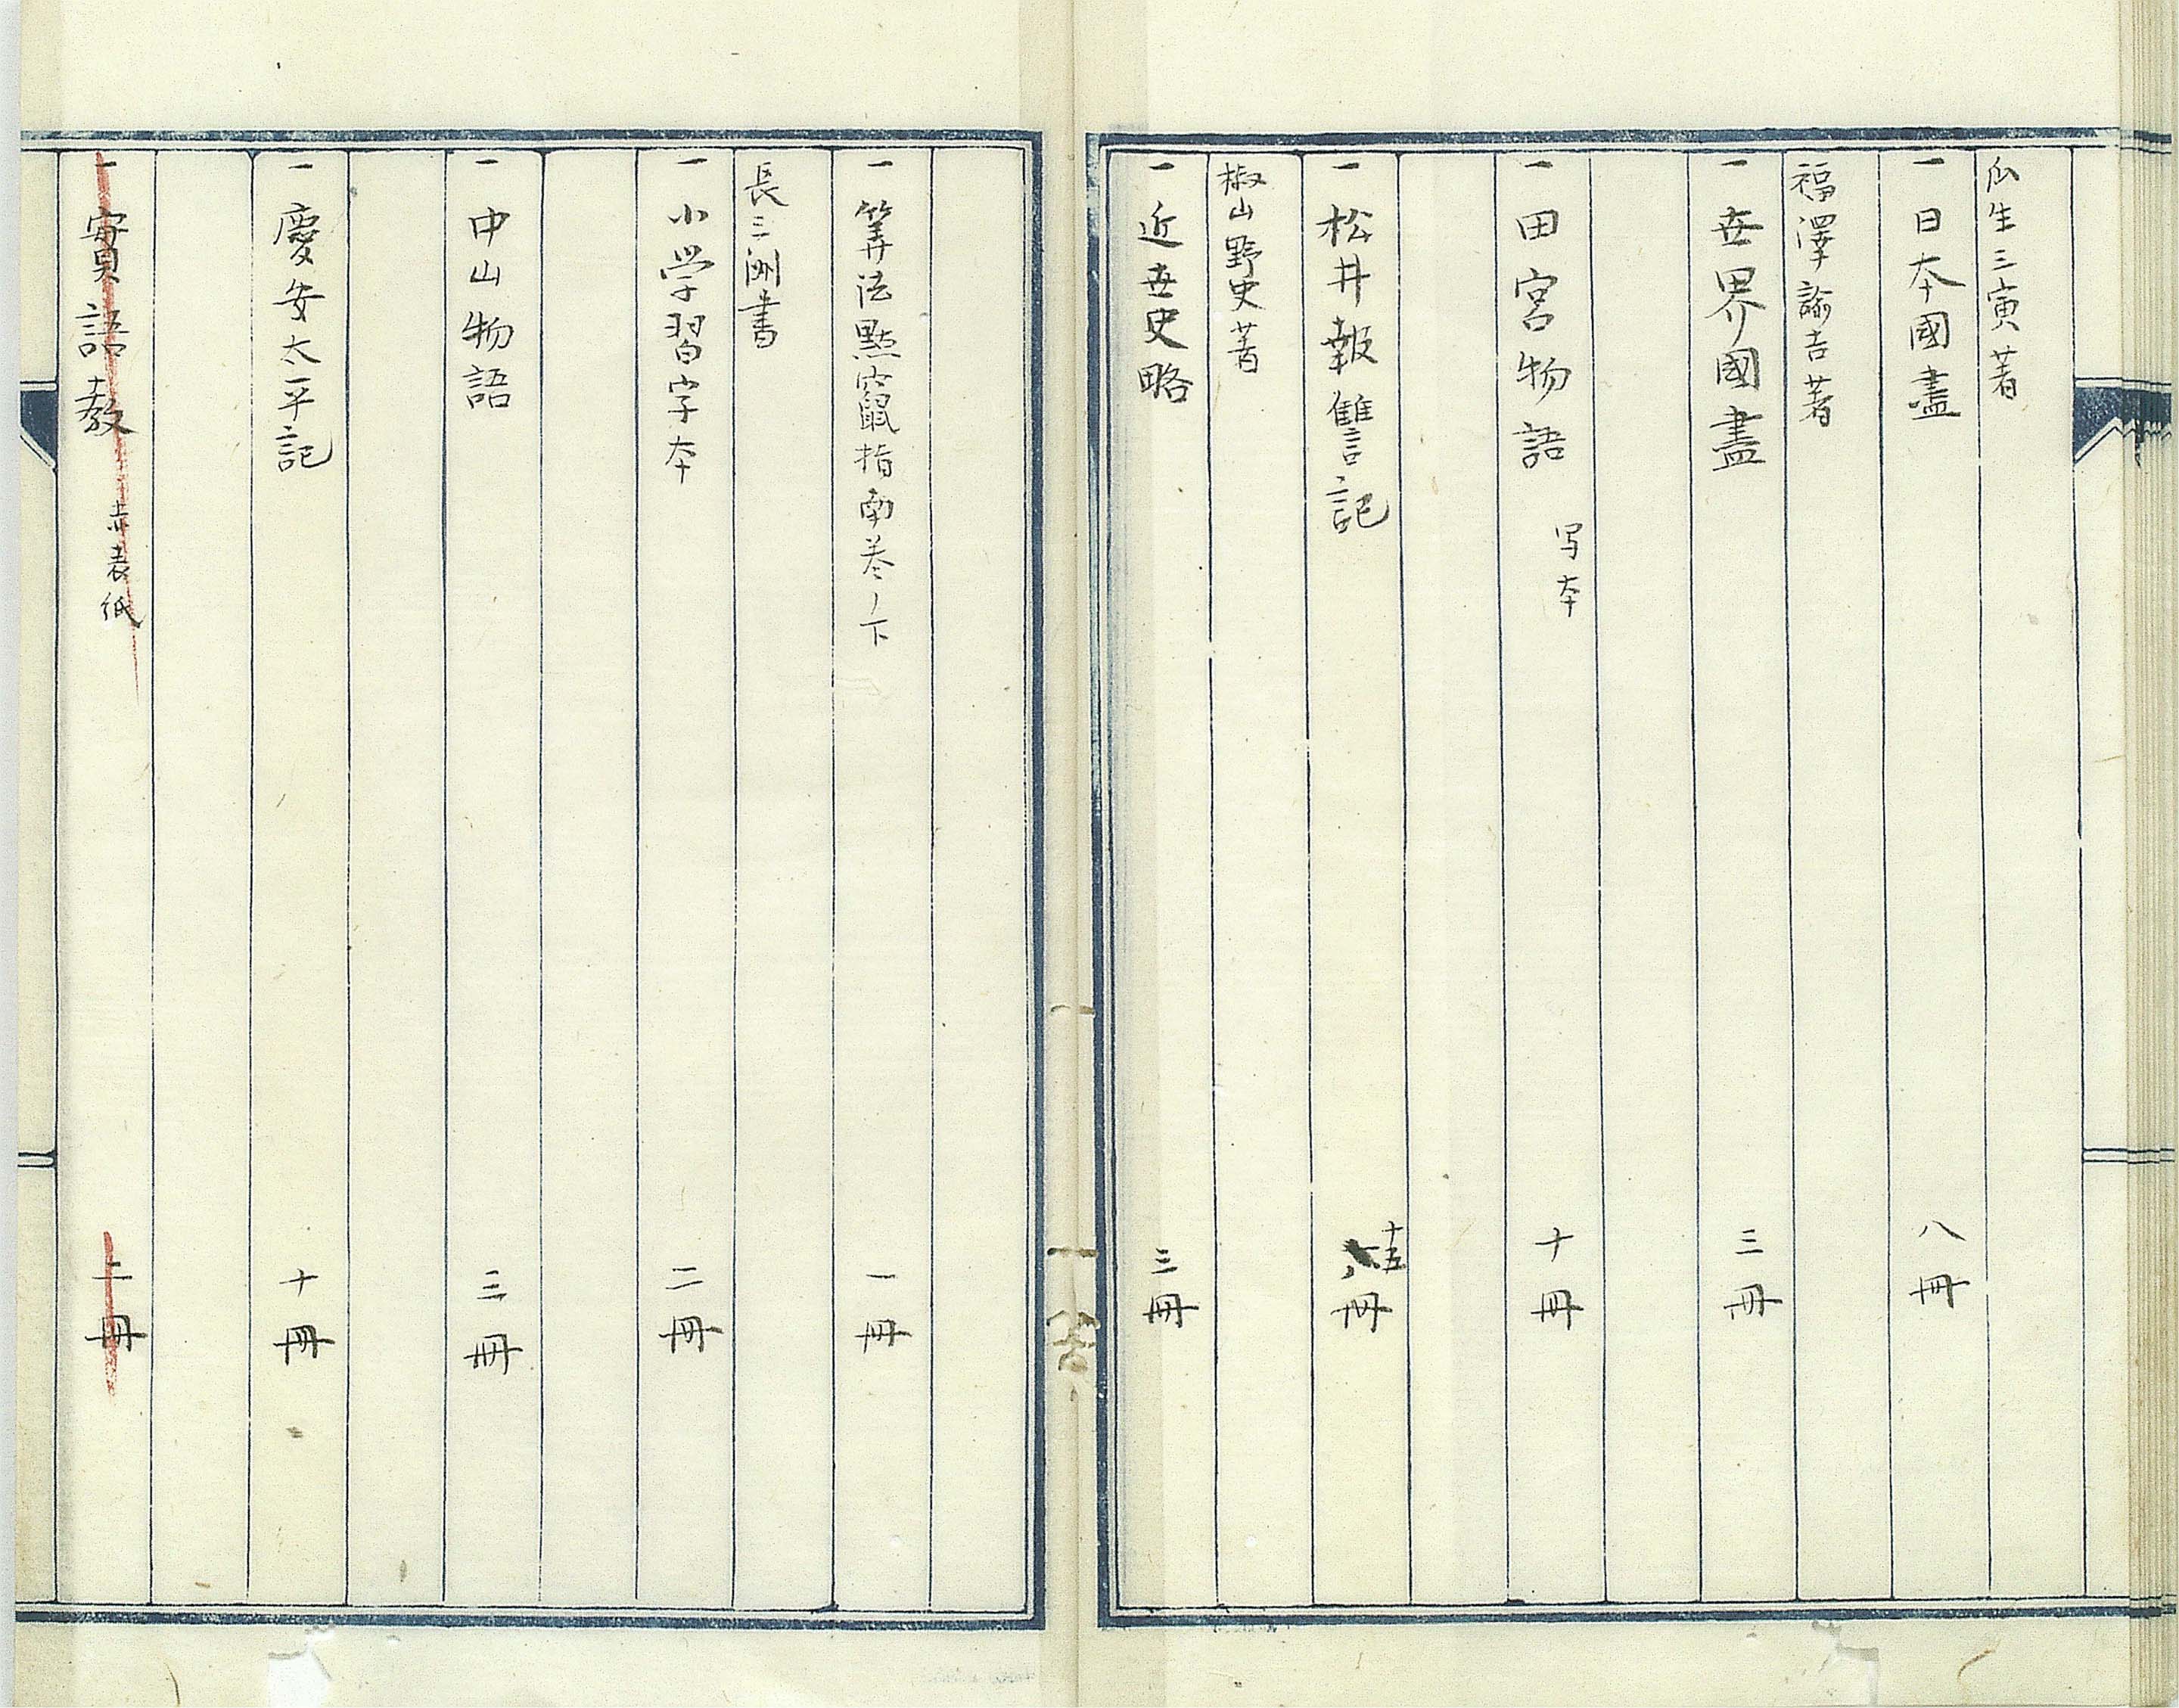 瓜生三寅著
一 日本國盡 八冊
福澤諭吉著
一 世界國盡 三冊
一 田宮物語 写本 十冊
一 松井報讐記 十五冊
椒山野史著
一 近世史略 三冊
一 筭法點竄指南巻ノ下 一冊
長三洲書
一 小学習字本 二冊
一 中山物語 三冊
一 慶安太平記 十冊
一 實語教 赤表紙 二冊